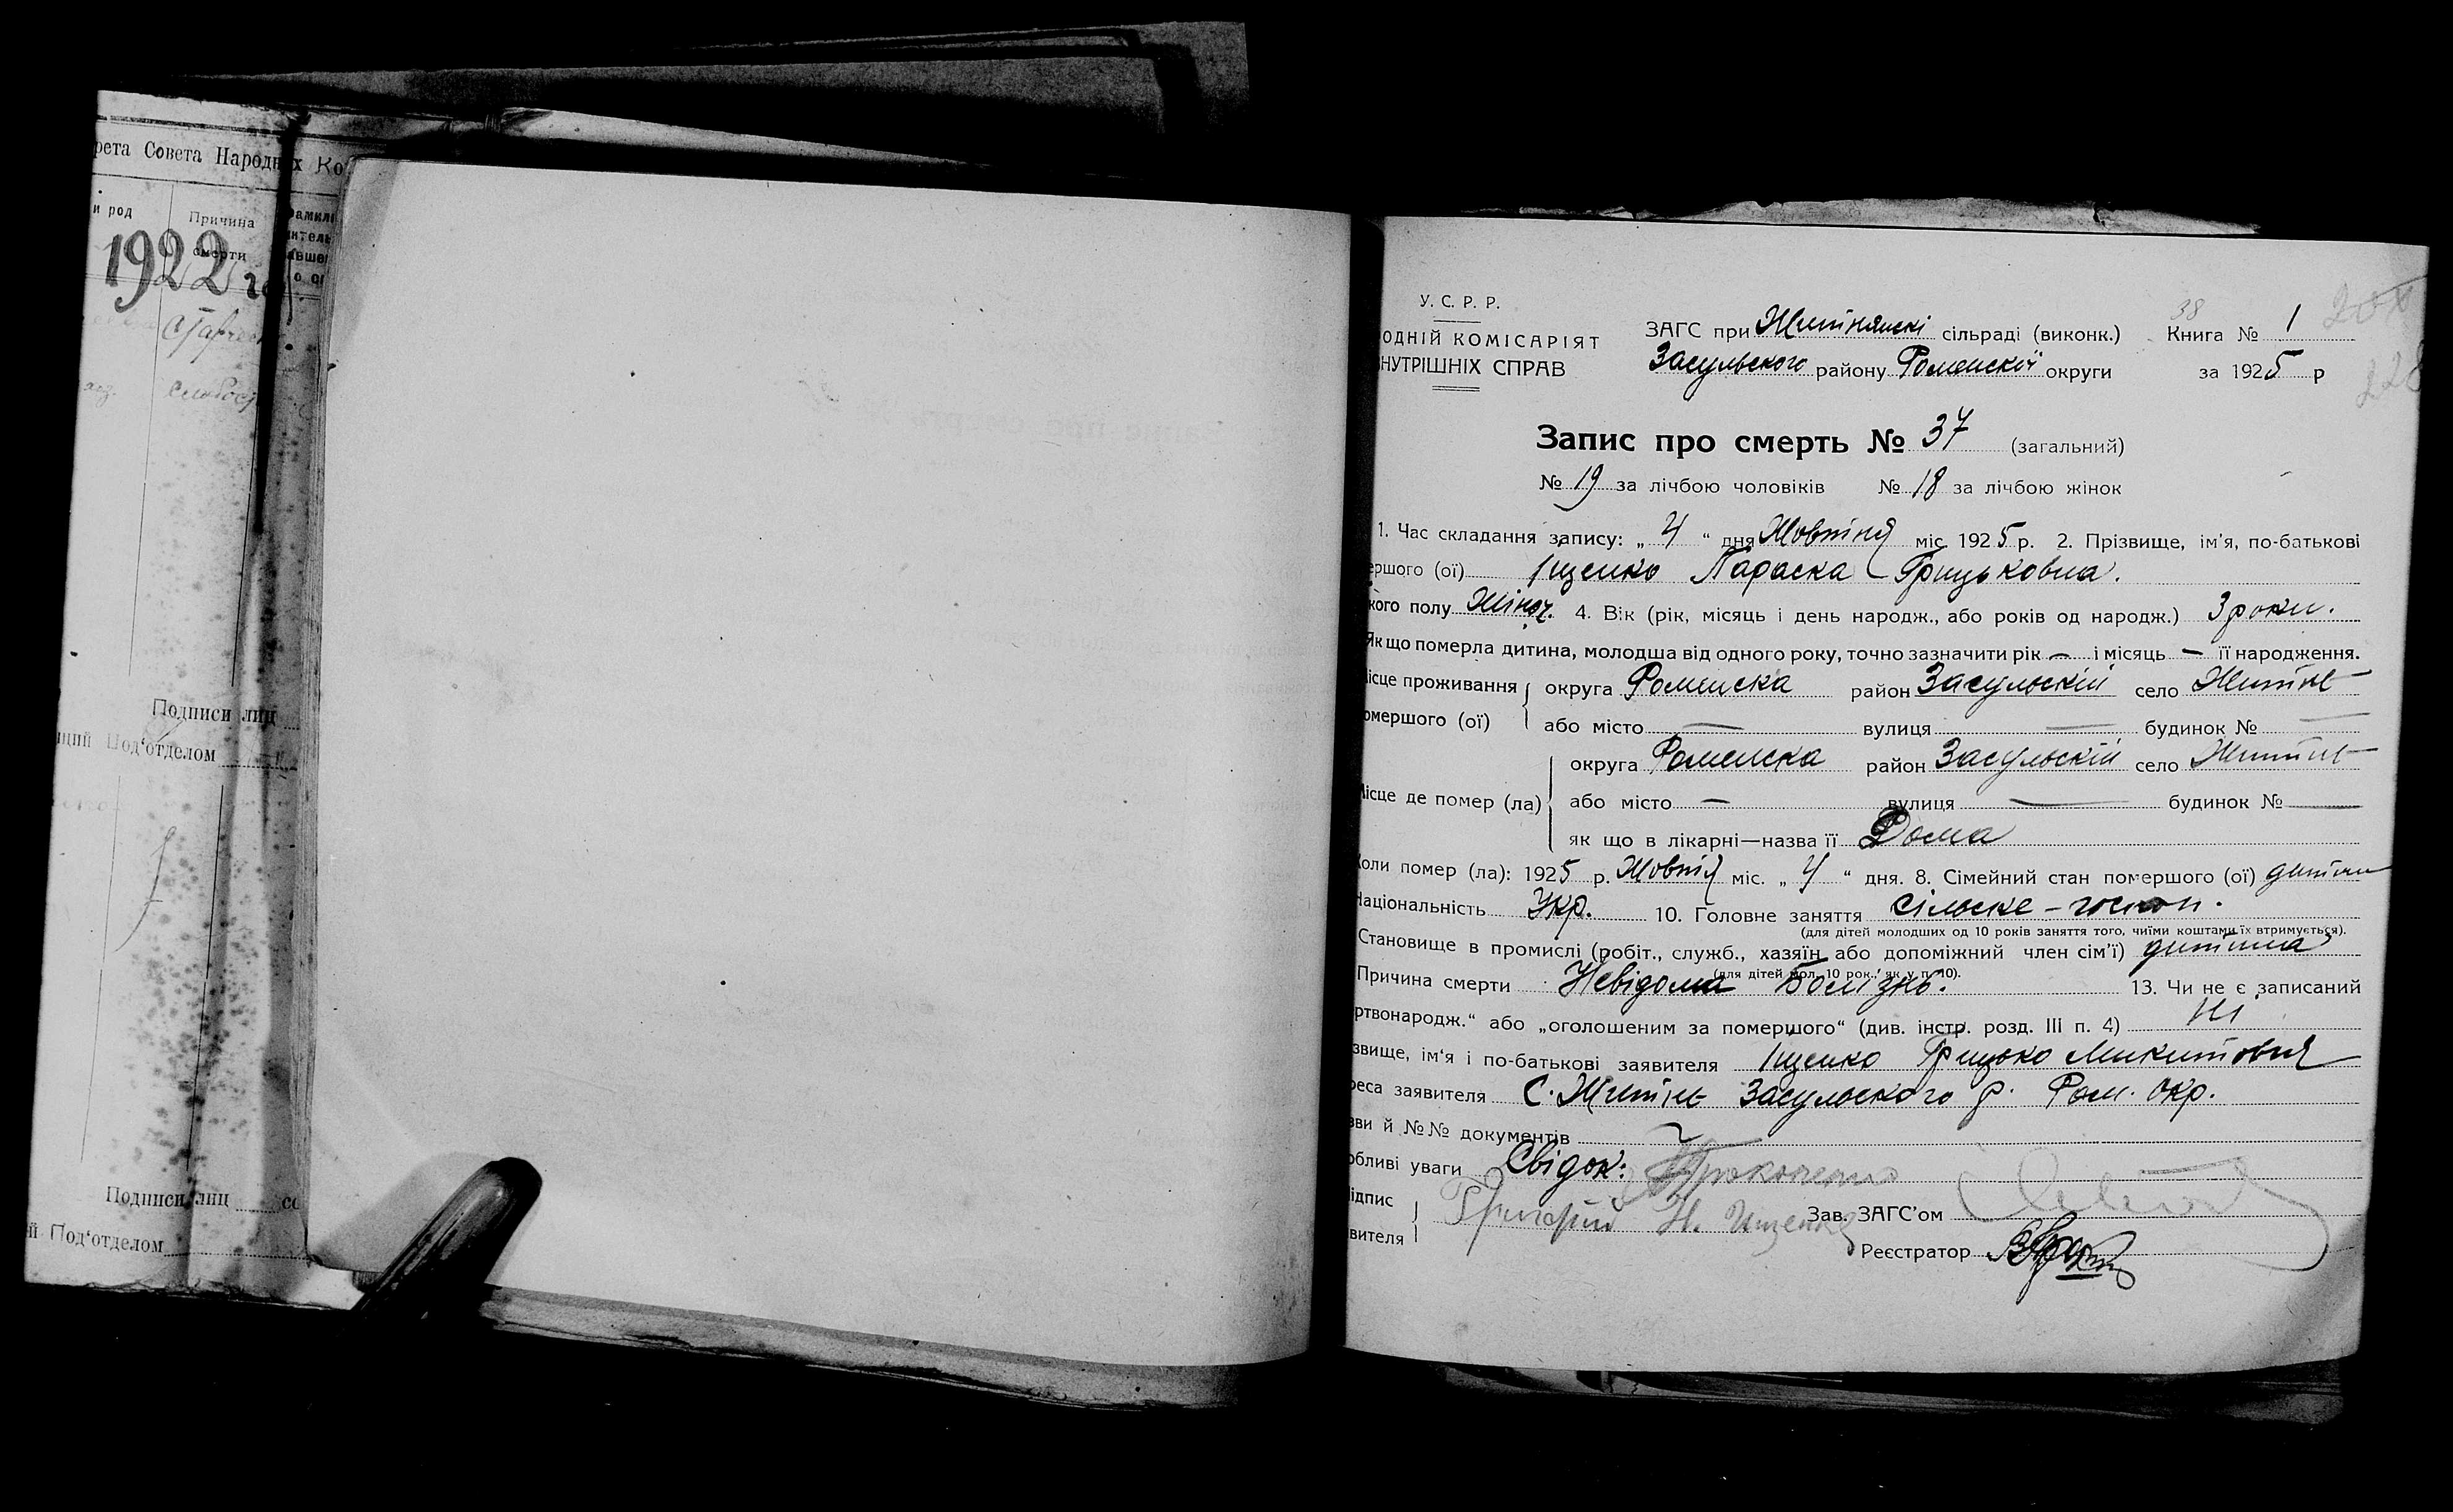 рета Совета Народных Ко
и род
Причина
смерти
1922 г
Подписи лиц
Под‘отделом
Подписи лиц
й Под‘отделом
У. С. Р. Р.
ОДНІЙ КОМІСАРІЯТ
НУТРІШНІХ СПРАВ
ЗАГС при Житнянскі сільраді (виконк.)
Засульского району Роменскої округи
38
Книга № 1
за 1925 р
228
Запис про смерть № 37 (загальний)
№ 19 за лічбою чоловіків № 18 за лічбою жінок
1. Час складання запису: „ 4 “ дня Жовтня міс. 1925 р. 2. Прізвище, ім'я, по-батькові
ершого (ої) Іщенко Параска Грицьковна.
кого полу Жіноч. 4. Вік (рік, місяць і день народж., або років од народж.) 3 роки.
Як що померла дитина, молодша від одного року, точно зазначити рік — і місяць — її народження.
ісце проживання
омершого (ої)
округа Роменска район Засульскій село Житне
або місто — вулиця — будинок № —
ісце де помер (ла)
округа Роменска район Засульскій село Житне
або місто — вулиця — будинок № —
як що в лікарні—назва її Дома
оли помер (ла): 1925 р. Жовтня міс. „ 4 “ дня. 8. Сімейний стан помершого (ої) дитина
Національність Укр. 10. Головне заняття сільске-господ.
(для дітей молодших од 10 років заняття того, чиїми коштами їх втримується).
Становище в промислі (робіт., служб., хазяїн або допоміжний член сім'ї) дитина
(для дітей мол. 10 рок., як у п. 10).
Причина смерти Невідома Болізнь. 13. Чи не є записаний
ртвонародж.“ або „оголошеним за помершого“ (див. інстр. розд. III п. 4) Ні
звище, ім‘я і по-батькові заявителя Іщенко Грицько Микитовия
реса заявителя С. Житне Засульского р. Ром. окр.
зви й №№ документів
обливі уваги Свідок: Прокопенко
ідпис
вителя
Григорій Н. Ищенко
Зав. ЗАГС'ом
Реєстратор